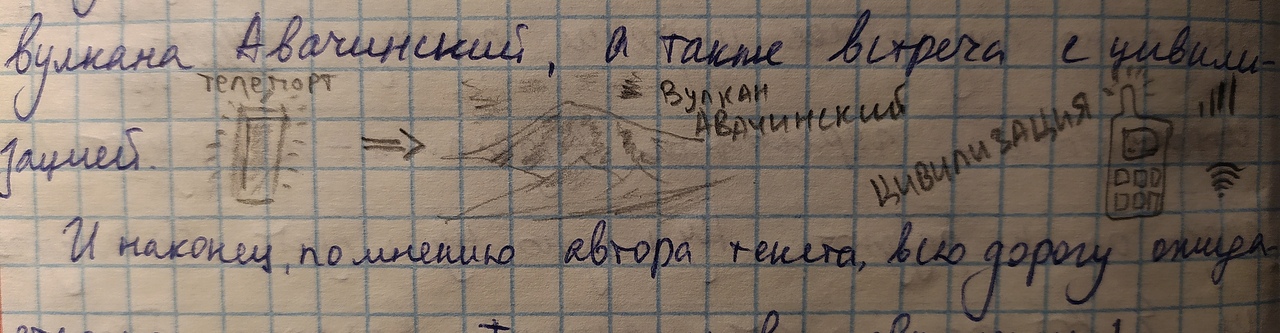 вулкана Авачинский, а также встреча с цивили-
телепорт
Вулкан
Авачинский
цивилизация
зацией.
И наконец, по мнению автора текста, всю дорогу ожида-